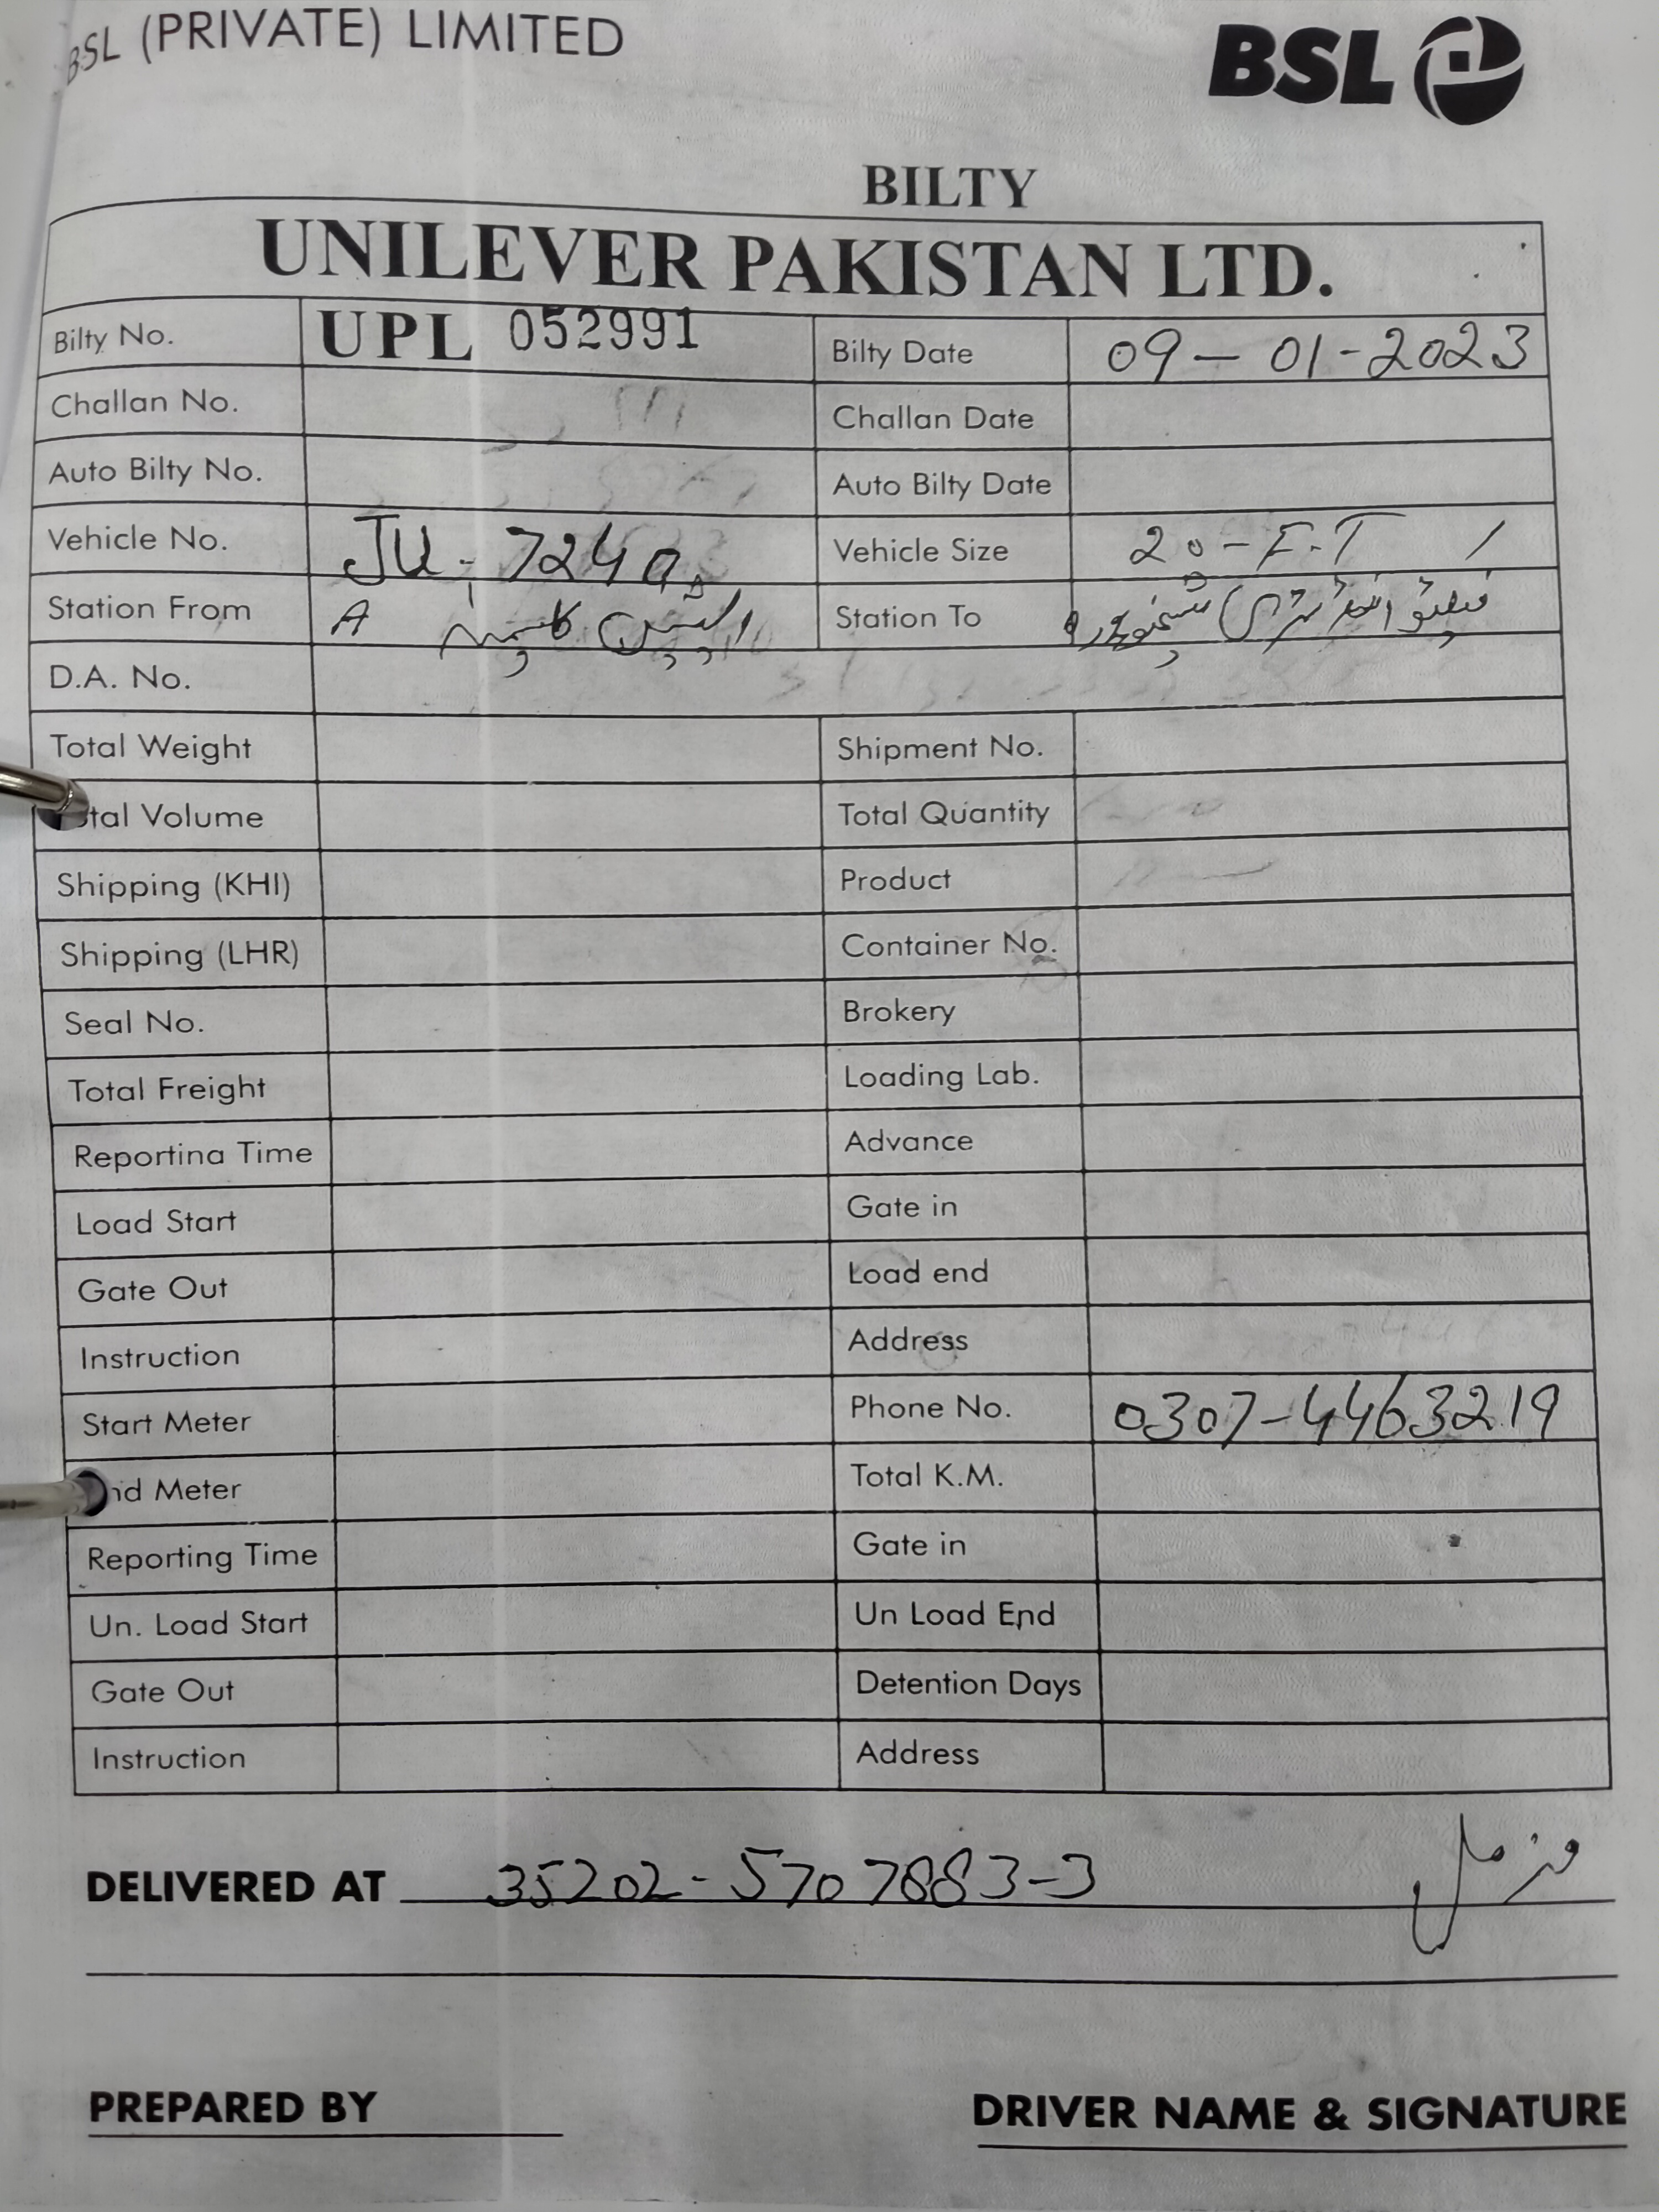 BSL (PRIVATE) LIMITED
BSL
BILTY
UNILEVER PAKISTAN LTD.
Bilty No. UPL 052991 Bilty Date 09-01-2023
Challan No. Challan Date
Auto Bilty No. Auto Bilty Date
Vehicle No. JU-7240 Vehicle Size 20-F.T
Station From A Station To شیخوپورہ
D.A. No.
Total Weight Shipment No.
Total Volume Total Quantity
Shipping (KHI) Product
Shipping (LHR) Container No.
Seal No. Brokery
Total Freight Loading Lab.
Reporting Time Advance
Load Start Gate in
Gate Out Load end
Instruction Address
Start Meter Phone No. 0307-4463219
End Meter Total K.M.
Reporting Time Gate in
Un. Load Start Un Load End
Gate Out Detention Days
Instruction Address
DELIVERED AT 35202-5707883-3 مزمل
PREPARED BY DRIVER NAME & SIGNATURE